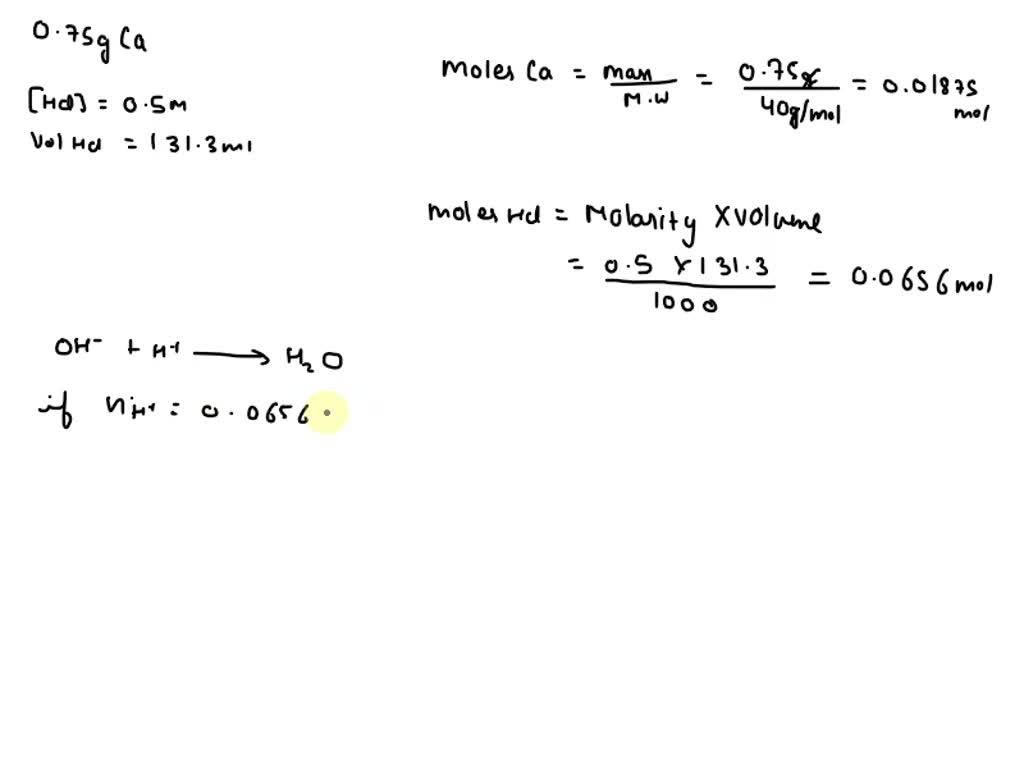 0.75g Ca
[Hcl] = 0.5M
Vol Hcl = 131.3ml
moles Ca = mass / M.W = 0.75g / 40g/mol = 0.01875 mol
moles Hcl = Molarity X volume
= 0.5 X 131.3 / 1000 = 0.0656 mol
OH⁻ + H⁺ → H₂O
if nH⁺ = 0.0656